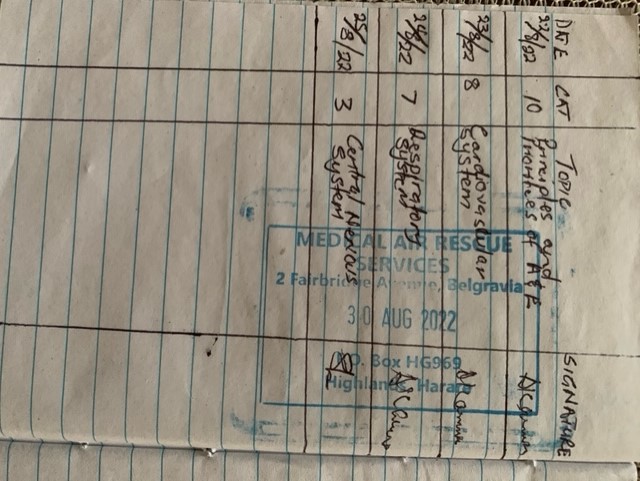 DATE CAT TOPIC SIGNATURE
22/8/22 10 Principles and
Priorities of A&E
23/8/22 8 Cardiovascular
System
24/8/22 7 Respiratory
System
25/8/22 3 Central Nervous
System
MEDICAL AIR RESCUE
SERVICES
2 Fairbridge Avenue, Belgravia
30 AUG 2022
P.O. Box HG969
Highlands, Harare